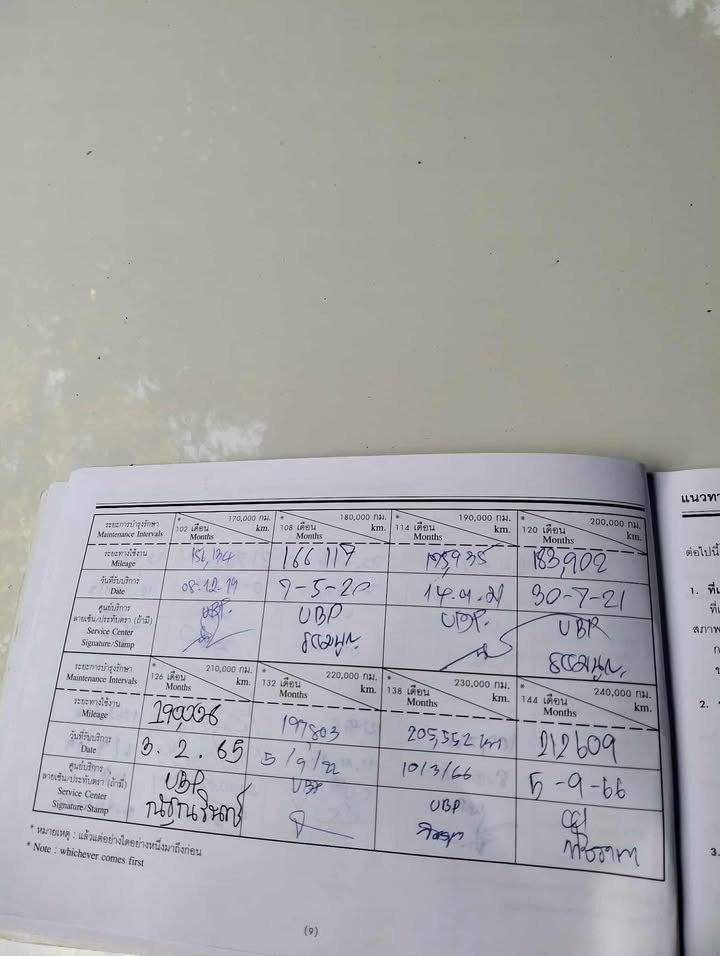 ระยะการบำรุงรักษา
Maintenance Intervals
* 102 เดือน Months 170,000 กม. km.
* 108 เดือน Months 180,000 กม. km.
* 114 เดือน Months 190,000 กม. km.
* 120 เดือน Months 200,000 กม. km.
ระยะทางใช้งาน
Mileage
156,134 166 117 175,935 183,902
วันที่รับบริการ
Date
08.12.19 7-5-20 14.01.21 30-7-21
ศูนย์บริการ
ลายเซ็น/ประทับตรา (ถ้ามี)
Service Center
Signature/Stamp
UBP. UBP UBP. UBP
ระยะการบำรุงรักษา
Maintenance Intervals
* 126 เดือน Months 210,000 กม. km.
* 132 เดือน Months 220,000 กม. km.
* 138 เดือน Months 230,000 กม. km.
* 144 เดือน Months 240,000 กม. km.
ระยะทางใช้งาน
Mileage
197803 205,552 km 212609
วันที่รับบริการ
Date
3. 2. 65 5/9/22 10/3/66 5-9-66
ศูนย์บริการ
ลายเซ็น/ประทับตรา (ถ้ามี)
Service Center
Signature/Stamp
UBP UBP UBP
* หมายเหตุ : แล้วแต่อย่างใดอย่างหนึ่งมาถึงก่อน
* Note : whichever comes first
(9)
แนวทา
ต่อไปนี้
1. ที่เ
ที่เ
สภาพ
2.
3.